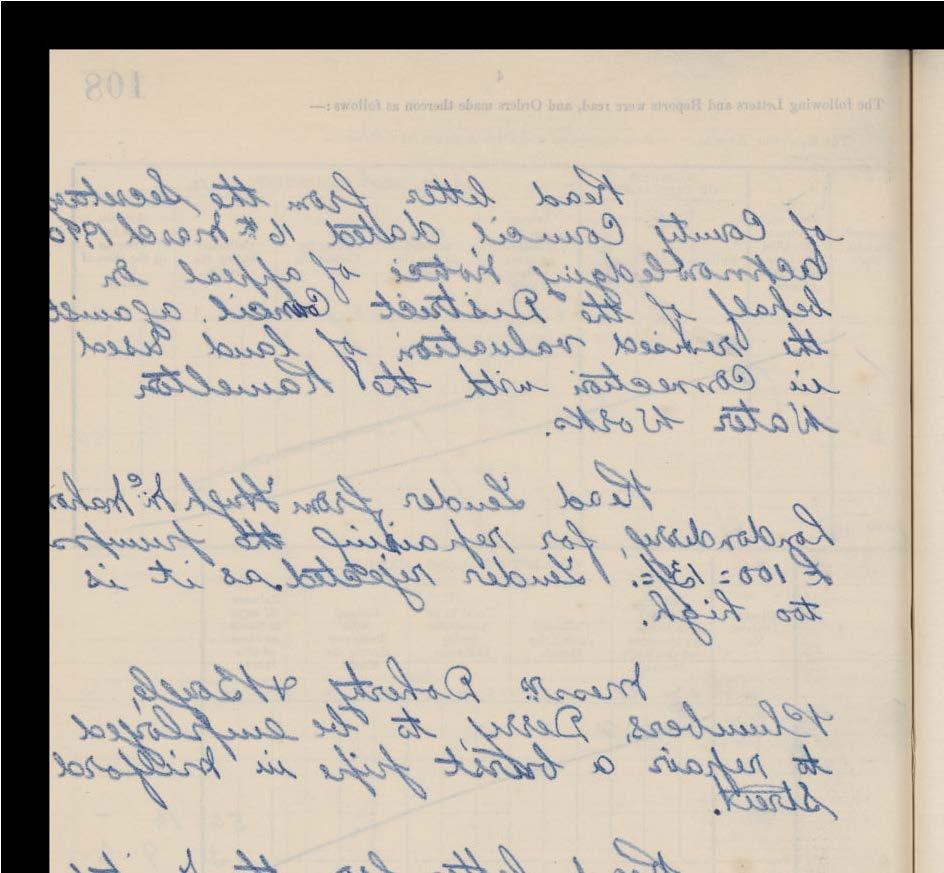 108
4
The following Letters and Reports were read, and Orders made thereon as follows:—
Read letter from the Secretary
of County Council, dated 16th March
acknowledging Notice of appeal on
behalf of the District Council against
the revised valuation of land used
in Connection with the Ramelton
Water Works.
Read Tender from Hugh McMahon
Londonderry, for repairing the pumps
£100=13/=. Tender rejected as it is
too high.
Messrs. Doherty & Boyle,
Plumbers, Derry, to be employed
to repair a burst pipe in Milford
Street.
Read letter